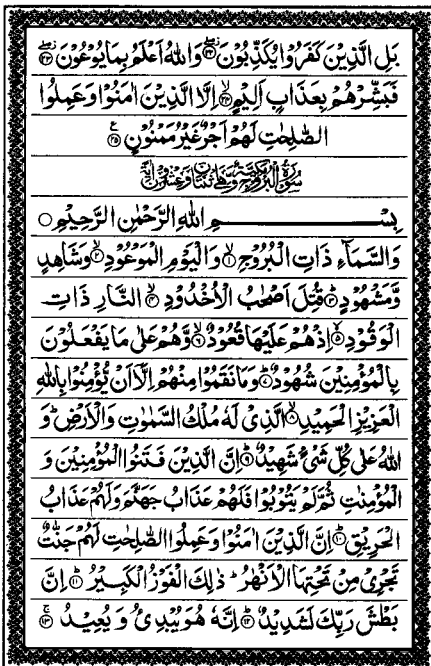 بَلِ الَّذِيْنَ كَفَرُوْا يُكَذِّبُوْنَ ﴿۲۲﴾ وَاللّٰهُ اَعْلَمُ بِمَا يُوْعُوْنَ ﴿۲۳﴾
فَبَشِّرْهُمْ بِعَذَابٍ اَلِيْمٍ ﴿۲۴﴾ اِلَّا الَّذِيْنَ اٰمَنُوْا وَعَمِلُوا
الصّٰلِحٰتِ لَهُمْ اَجْرٌ غَيْرُ مَمْنُوْنٍ ﴿۲۵﴾
سُوْرَةُ الْبُرُوْجِ مَكِّيَّةٌ وَّهِيَ اثْنَتَانِ وَعِشْرُوْنَ اٰيَةً
بِسْمِ اللّٰهِ الرَّحْمٰنِ الرَّحِيْمِ ○
وَالسَّمَآءِ ذَاتِ الْبُرُوْجِ ﴿۱﴾ وَالْيَوْمِ الْمَوْعُوْدِ ﴿۲﴾ وَشَاهِدٍ
وَّمَشْهُوْدٍ ﴿۳﴾ قُتِلَ اَصْحٰبُ الْاُخْدُوْدِ ﴿۴﴾ النَّارِ ذَاتِ
الْوَقُوْدِ ﴿۵﴾ اِذْ هُمْ عَلَيْهَا قُعُوْدٌ ﴿۶﴾ وَّهُمْ عَلٰى مَا يَفْعَلُوْنَ
بِالْمُؤْمِنِيْنَ شُهُوْدٌ ﴿۷﴾ وَمَا نَقَمُوْا مِنْهُمْ اِلَّآ اَنْ يُّؤْمِنُوْا بِاللّٰهِ
الْعَزِيْزِ الْحَمِيْدِ ﴿۸﴾ الَّذِيْ لَهٗ مُلْكُ السَّمٰوٰتِ وَالْاَرْضِ ؕ وَ
اللّٰهُ عَلٰى كُلِّ شَيْءٍ شَهِيْدٌ ﴿۹﴾ اِنَّ الَّذِيْنَ فَتَنُوا الْمُؤْمِنِيْنَ وَ
الْمُؤْمِنٰتِ ثُمَّ لَمْ يَتُوْبُوْا فَلَهُمْ عَذَابُ جَهَنَّمَ وَلَهُمْ عَذَابُ
الْحَرِيْقِ ﴿۱۰﴾ اِنَّ الَّذِيْنَ اٰمَنُوْا وَعَمِلُوا الصّٰلِحٰتِ لَهُمْ جَنّٰتٌ
تَجْرِيْ مِنْ تَحْتِهَا الْاَنْهٰرُ ؕ ذٰلِكَ الْفَوْزُ الْكَبِيْرُ ﴿۱۱﴾ اِنَّ
بَطْشَ رَبِّكَ لَشَدِيْدٌ ﴿۱۲﴾ اِنَّهٗ هُوَ يُبْدِئُ وَيُعِيْدُ ﴿۱۳﴾